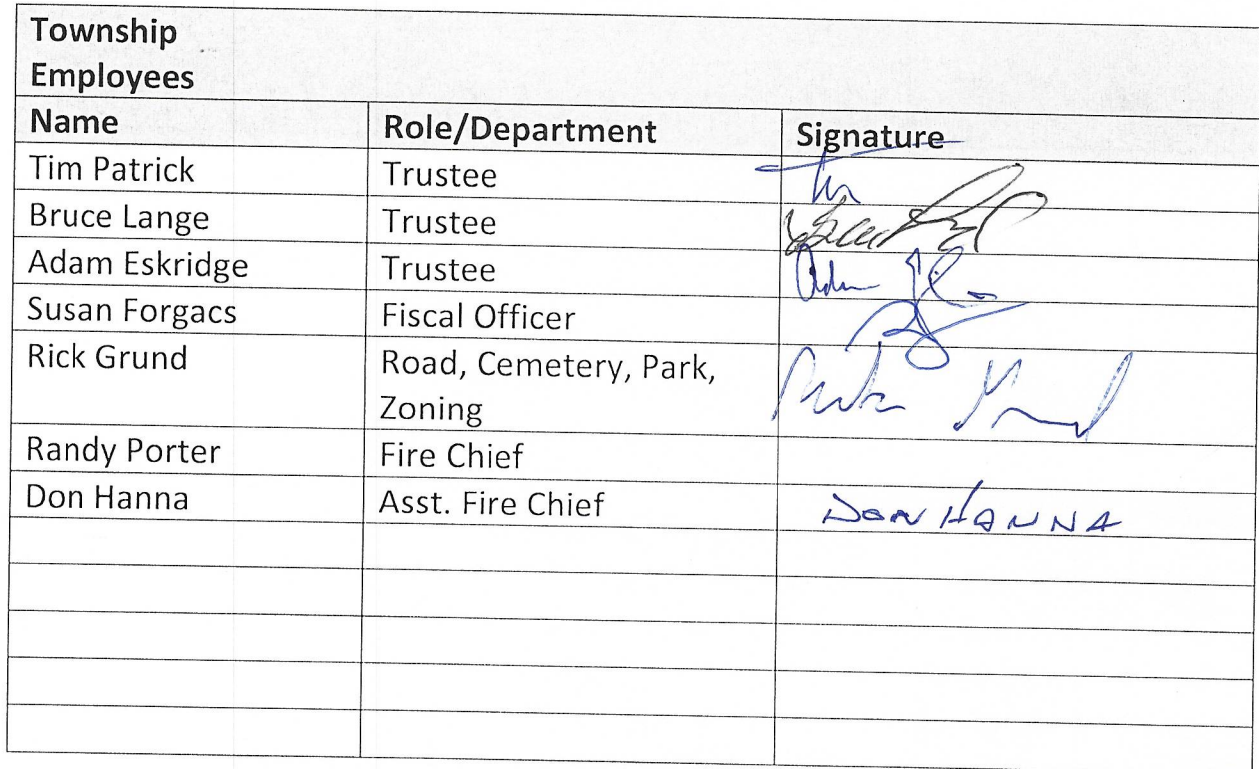 Township
Employees
Name Role/Department Signature
Tim Patrick Trustee
Bruce Lange Trustee
Adam Eskridge Trustee
Susan Forgacs Fiscal Officer
Rick Grund Road, Cemetery, Park,
Zoning
Randy Porter Fire Chief
Don Hanna Asst. Fire Chief DON HANNA